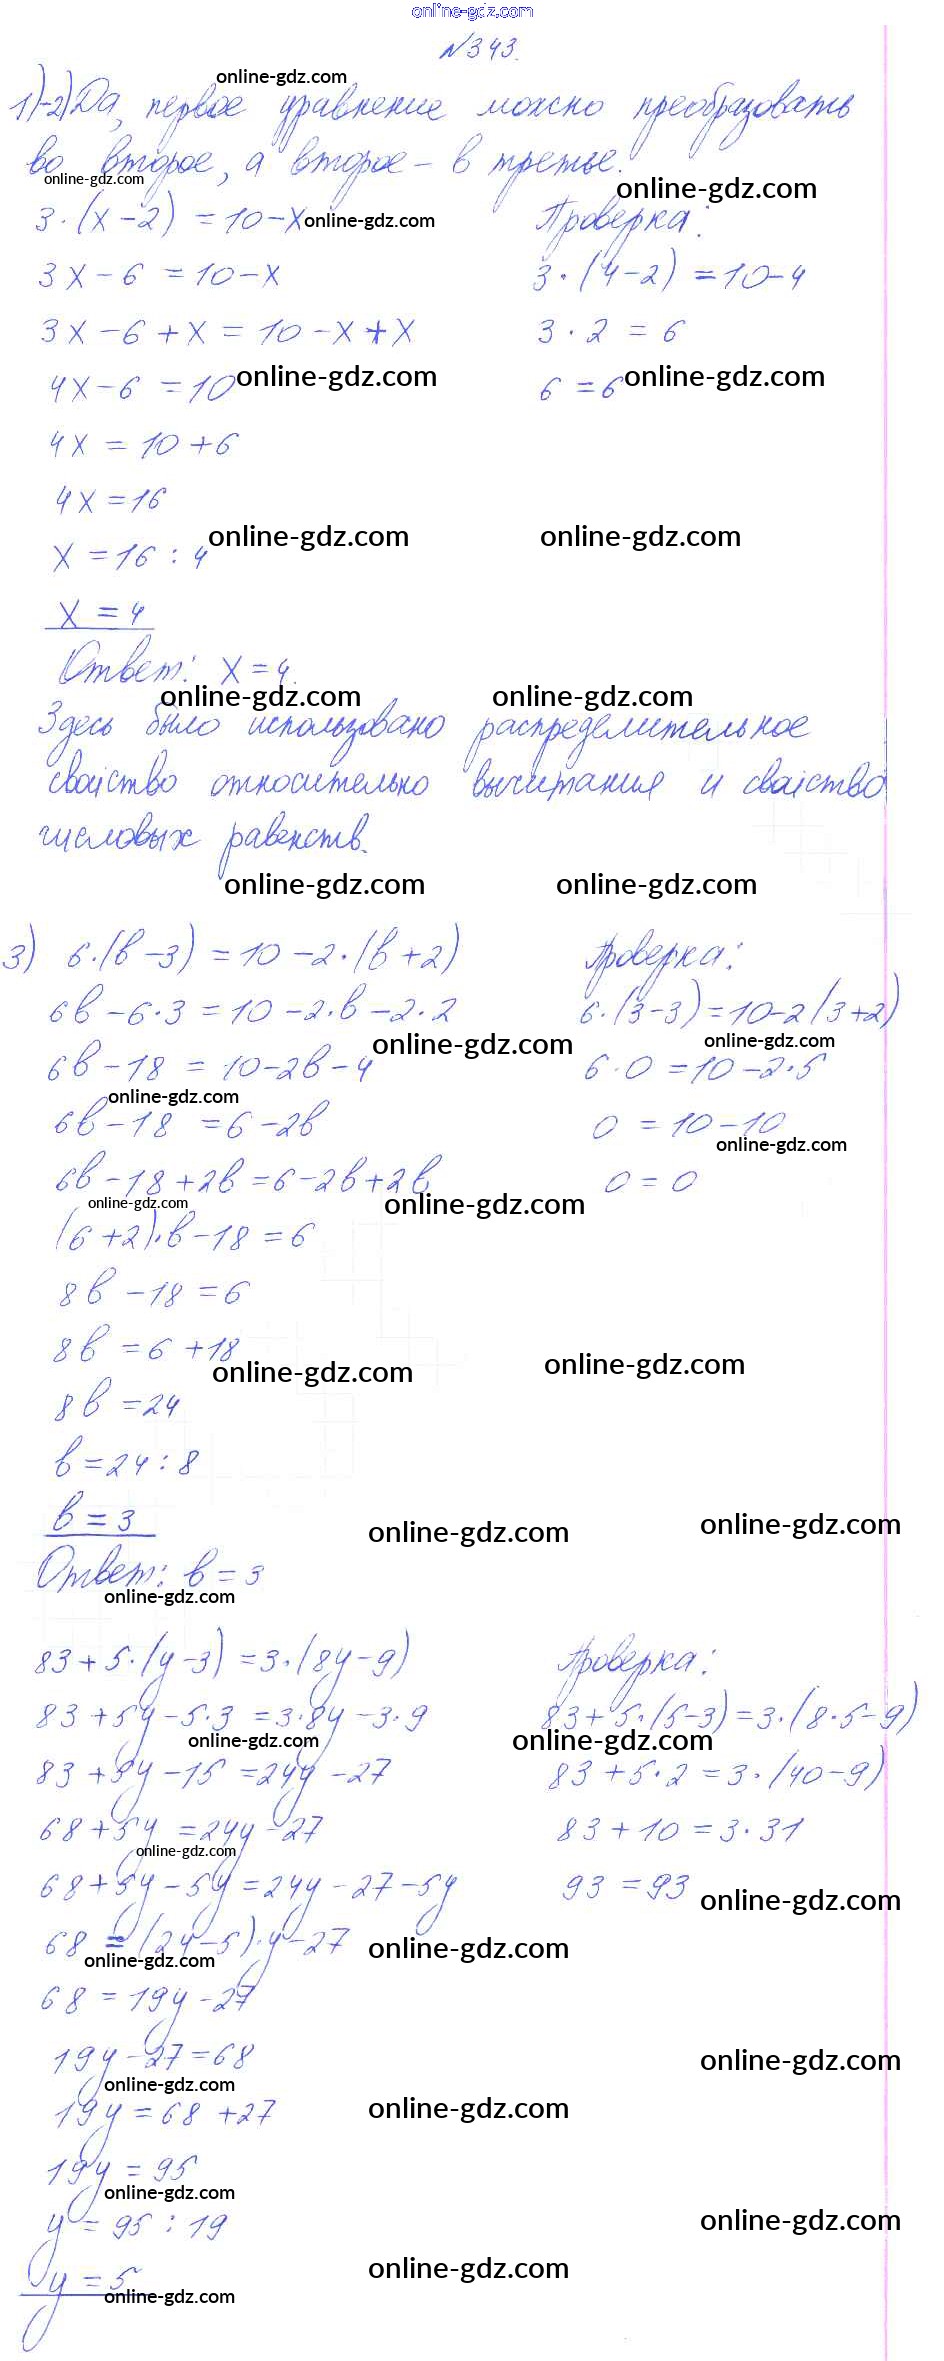 online-gdz.com
№343.
online-gdz.com
1)-2) Да, первое уравнение можно преобразовать
во второе, а второе - в третье.
online-gdz.com
online-gdz.com
3·(x-2) = 10-x online-gdz.com
Проверка:
3x-6 = 10-x
3·(4-2) = 10-4
3x-6+x = 10-x+x
3·2 = 6
4x-6 = 10 online-gdz.com
6 = 6 online-gdz.com
4x = 10+6
4x = 16
online-gdz.com online-gdz.com
x = 16 : 4
x = 4
Ответ: x = 4.
online-gdz.com online-gdz.com
Здесь было использовано распределительное
свойство относительно вычитания и свойство
числовых равенств.
online-gdz.com online-gdz.com
3) 6·(в-3) = 10-2·(в+2)
Проверка:
6в-6·3 = 10-2·в-2·2
6·(3-3) = 10-2(3+2)
online-gdz.com online-gdz.com
6в-18 = 10-2в-4
6·0 = 10-2·5
online-gdz.com
6в-18 = 6-2в
0 = 10-10
online-gdz.com
6в-18+2в = 6-2в+2в
0 = 0
online-gdz.com online-gdz.com
(6+2)·в-18 = 6
8в-18 = 6
8в = 6+18
online-gdz.com online-gdz.com
8в = 24
в = 24 : 8
в = 3
online-gdz.com online-gdz.com
Ответ: в = 3
online-gdz.com
83+5·(y-3) = 3·(8y-9)
Проверка:
83+5y-5·3 = 3·8y-3·9
83+5·(5-3) = 3·(8·5-9)
online-gdz.com online-gdz.com
83+5y-15 = 24y-27
83+5·2 = 3·(40-9)
68+5y = 24y-27
83+10 = 3·31
online-gdz.com
68+5y-5y = 24y-27-5y
93 = 93 online-gdz.com
68 = (24-5)·y-27 online-gdz.com
online-gdz.com
68 = 19y-27
19y-27 = 68
online-gdz.com
online-gdz.com
19y = 68+27
online-gdz.com
19y = 95
online-gdz.com
y = 95 : 19
online-gdz.com
online-gdz.com
y = 5
online-gdz.com